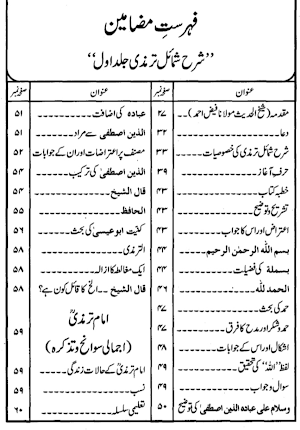 فہرستِ مضامین
”شرح شمائل ترمذی جلد اول“
عنوان صفحہ نمبر
مقدمہ (شیخ الحدیث مولانا فیض احمد) ۲۷
دعا ۳۲
شرح شمائل ترمذی کی خصوصیات ۳۳
حرف آغاز ۳۹
خطبہ کتاب ۴۳
تشریح و توضیح ۴۳
اعتراض اور اس کا جواب ۴۳
بسم الله الرحمن الرحیم ۴۴
بسملة کی فضیلت ۴۴
الحمد لله ۴۶
حمد کی بحث ۴۷
حمد و شکر اور مدح کا فرق ۴۷
اشکال اور اس کے جوابات ۴۸
لفظ ”اللہ“ کی تحقیق ۴۹
سوال و جواب ۴۹
وسلام علی عباده الذین اصطفی کی توضیح ۵۰
عنوان صفحہ نمبر
عباده کی اضافت ۵۱
الذین اصطفی سے مراد ۵۱
مصنف پر اعتراضات اور ان کے جوابات ۵۲
الذین اصطفی کی ترکیب ۵۴
قال الشیخ ۵۴
الحافظ ۵۵
کنیت ابو عیسیٰ کی بحث ۵۶
الترمذی ۵۸
ایک مغالطہ کا ازالہ ۵۸
قال الشیخ ... الخ کا قائل کون ہے؟ ۵۸
امام ترمذیؒ
(اجمالی سوانح و تذکرہ) ۵۹
امام ترمذیؒ کے حالات زندگی ۵۹
نسب ۵۹
تعلیمی سلسلہ ۶۰